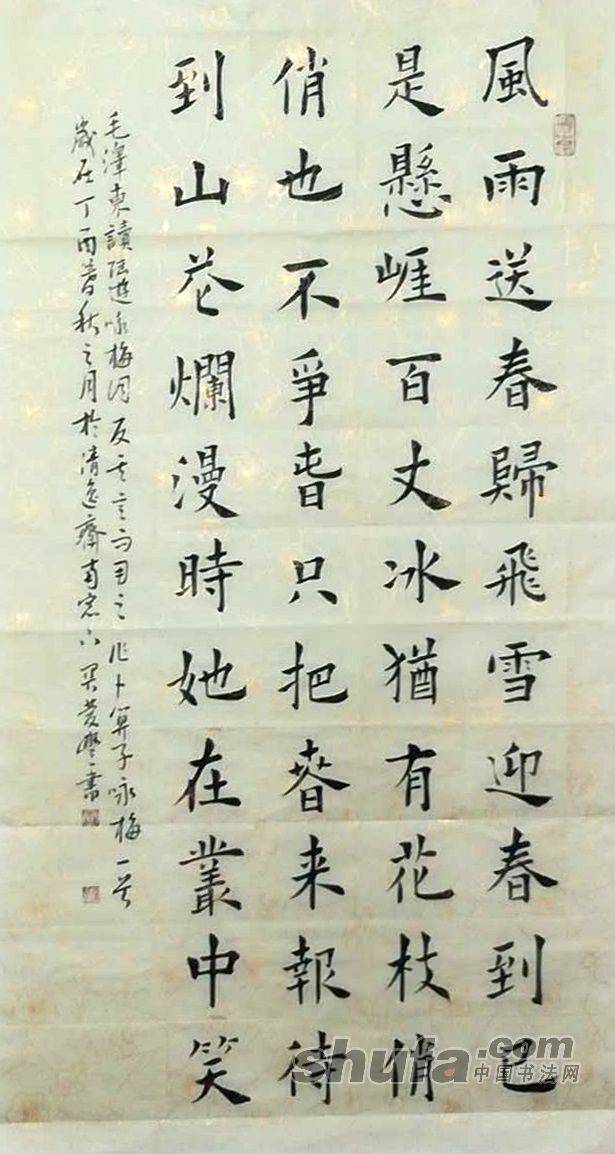 風雨送春歸飛雪迎春到已
是懸崕百丈冰猶有花枝俏
俏也不爭旾只把旾来報待
到山花爛漫時她在叢中笑
毛澤東讀陸遊咏梅詞反其意而用之作卜算子咏梅一首
歲在丁酉暮秋之月於清逸齋南窓下書
shufa.com
中国书法网